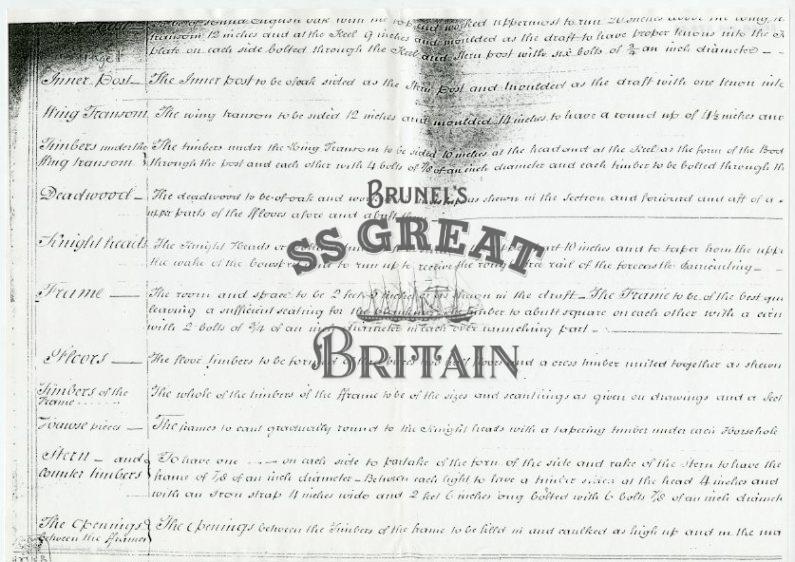 of sound English oak with me to and worked uppermost to run 20 inches above the wing
transom 12 inches and at the Keel 9 inches and moulded as the draft to have proper tenons into the
Page 1
plate on each side bolted through the Keel and Stern post with six bolts of ¾ an inch diameter - -
Inner Post - The Inner post to be of oak sided as the Stern post and moulded as the draft with one tenon into
Wing Transom The wing transom to be sided 12 inches and moulded 14 inches to have a round up of 4½ inches and
Timbers under the The timbers under the Wing Transom to be sided 10 inches at the head and at the Keel as the form of the Bod
Wing transom } through the post and each other with 4 bolts of ⅞ of an inch diameter and each timber to be bolted through th
Deadwood - The deadwood to be of oak and as shewn in the section and forward and aft of a
upper parts of the ffloors afore and abaft the
Knight heads The Knight Heads part 10 inches and to taper from the uppe
the wake of the bowsprit and to run up to receive the rough tree rail of the forecastle barricading -
Frame - The room and space to be 2 feet 6 inches as shewn in the draft - The Frame to be of the best qua
leaving a sufficient seating for the timber to abutt square on each other with a
with 2 bolts of ¾ of an inch diameter in each over launching part -
Floors - The floor timbers to be formed floors and a cross timber united together as shewn
Timbers of the The whole of the timbers of the fframe to be of the sizes and scantlings as given on drawings and a Sect
Frame
Hawse pieces - The frames to cant gradually round to the Knight heads with a tapering timber under each Hawsehole
Stern - and To have one - - - on each side to partake of the form of the side and rake of the Stern to have the
counter timbers frame of ⅞ of an inch diameter - Between each light to have a timber sided at the head 4 inches and
with an iron strap 4 inches wide and 2 feet 6 inches long bolted with 6 bolts ⅞ of an inch diamete
The Openings The Openings between the Timbers of the frame to be filled in and caulked as high up and in the ma
between the fframes
BRUNEL'S
SS GREAT
BRITAIN